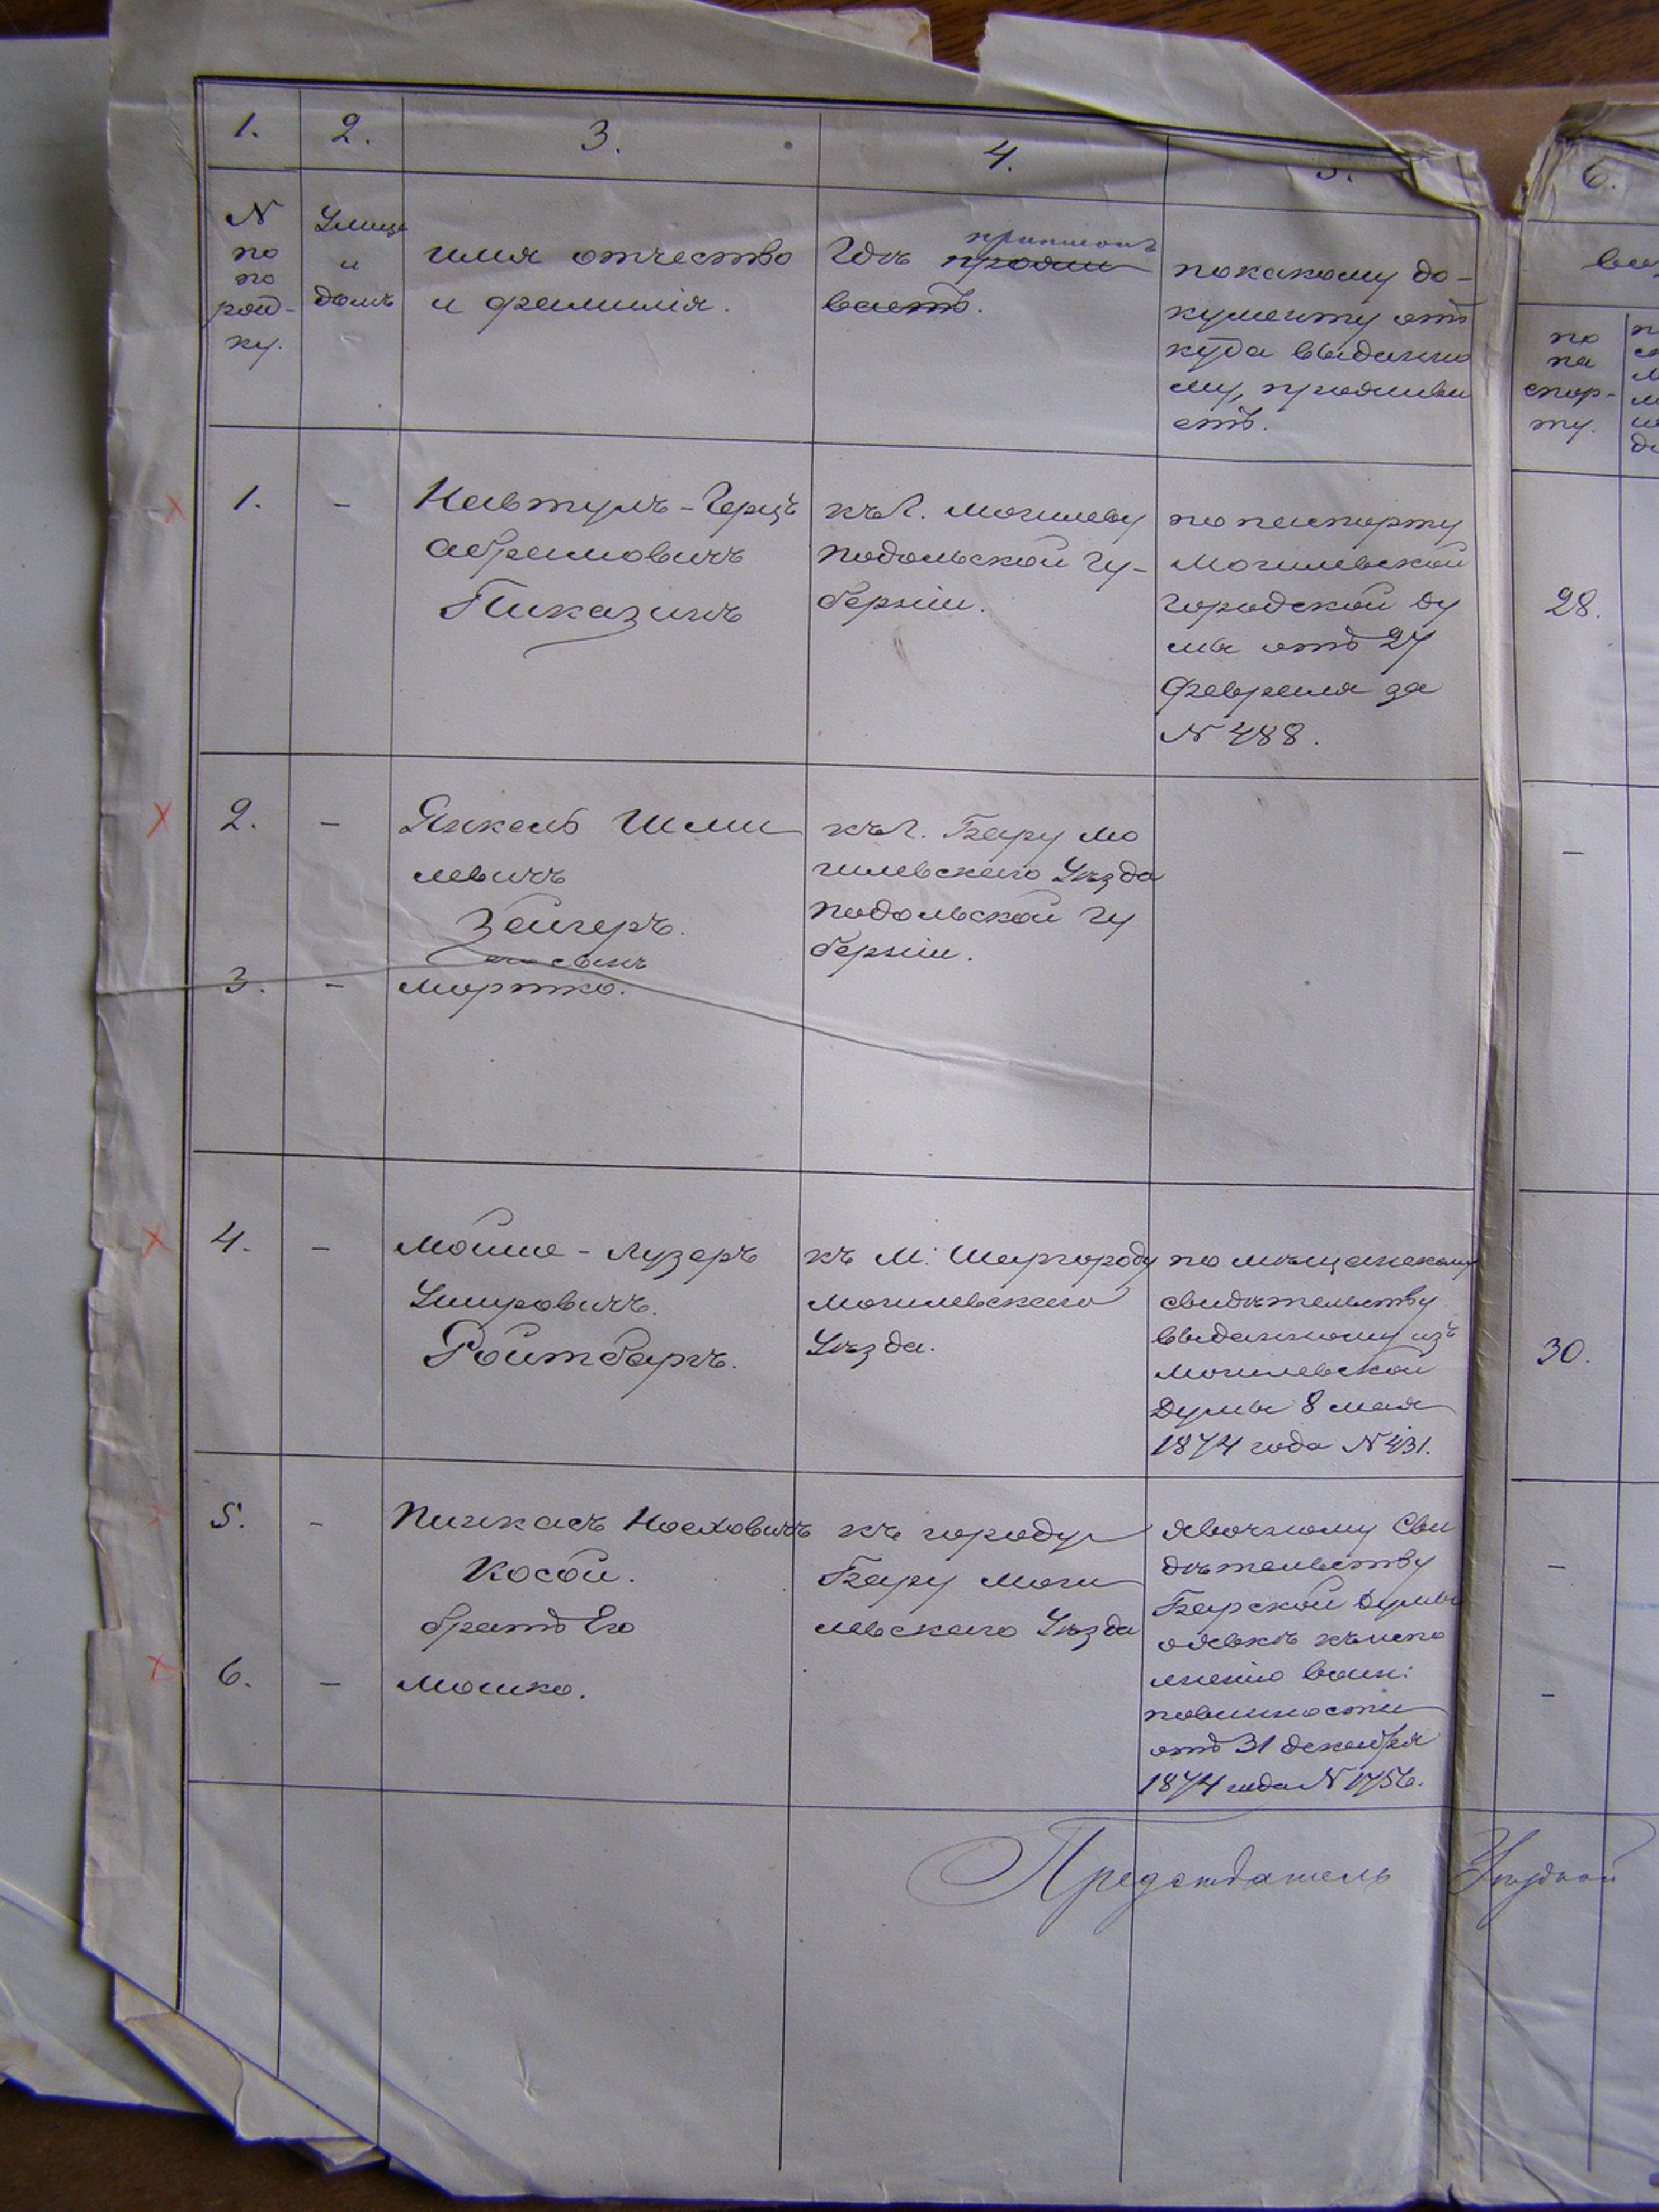 1.
2.
3.
4.
5.
6.
N
по
по
ряд-
ку.
Улица
и
домъ
имя отчество
и фамилія.
приписанъ
Гдѣ прожи
ваетъ.
по какому до-
кументу отъ
куда выданно
му, прожива
етъ.
по
па
спор-
ту.
1.
-
Навтулъ-Герцъ
Абрамовичъ
Пиказинъ
къ г. Могилеву
Подольской гу-
берніи.
по паспорту
Могилевской
городской ду
мы отъ 27
февраля за
N 488.
28.
2.
-
Янкель Шми
левичъ
Зейгеръ.
3.
-
его сынъ
Мортко.
къ г. Бару Мо
гилевскаго Уѣзда
Подольской гу
берніи.
-
4.
-
Мойше-Лузеръ
Шмуровичъ.
Ройтбаргъ.
къ М. Шаргороду
Могилевскаго
Уѣзда.
по мѣщанскому
свидѣтельству
выданному изъ
Могилевской
Думы 8 мая
1874 года N 431.
30.
5.
-
Пинкасъ Носховичъ
Косой.
братъ Его
6.
-
Мошко.
къ городу
Бару Моги
левскаго Уѣзда
явочному Сви
дѣтельству
Барской Думы
о явкѣ къ испо
лненію воин:
повинности
отъ 31 декабря
1874 года N 1756.
-
-
Предсѣдатель